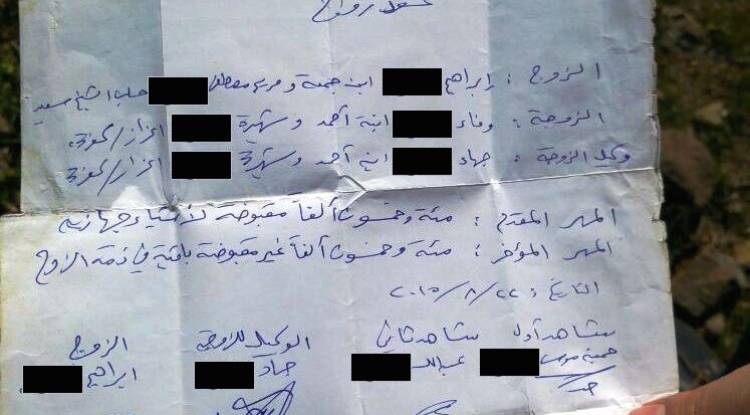 عقد زواج
الزوج : إبراهيم ابن جمعة و مريم مصطفى حلب الشيخ سعيد
الزوجة : وفاء ابنة أحمد و شهيرة اعزاز/
وكيل الزوجة : جهاد ابن أحمد و شهيرة اعزاز/
المهر المقدم : مئة وخمسون ألفاً مقبوضة لأشياء جهازية
المهر المؤخر : مئة وخمسون ألفاً غير مقبوضة باقية في ذمة الزوج
التاريخ : ٢٠١٥/٨/٢٢
شاهد أول شاهد ثاني الوكيل للزوجة الزوج
عبدالله جهاد ابراهيم